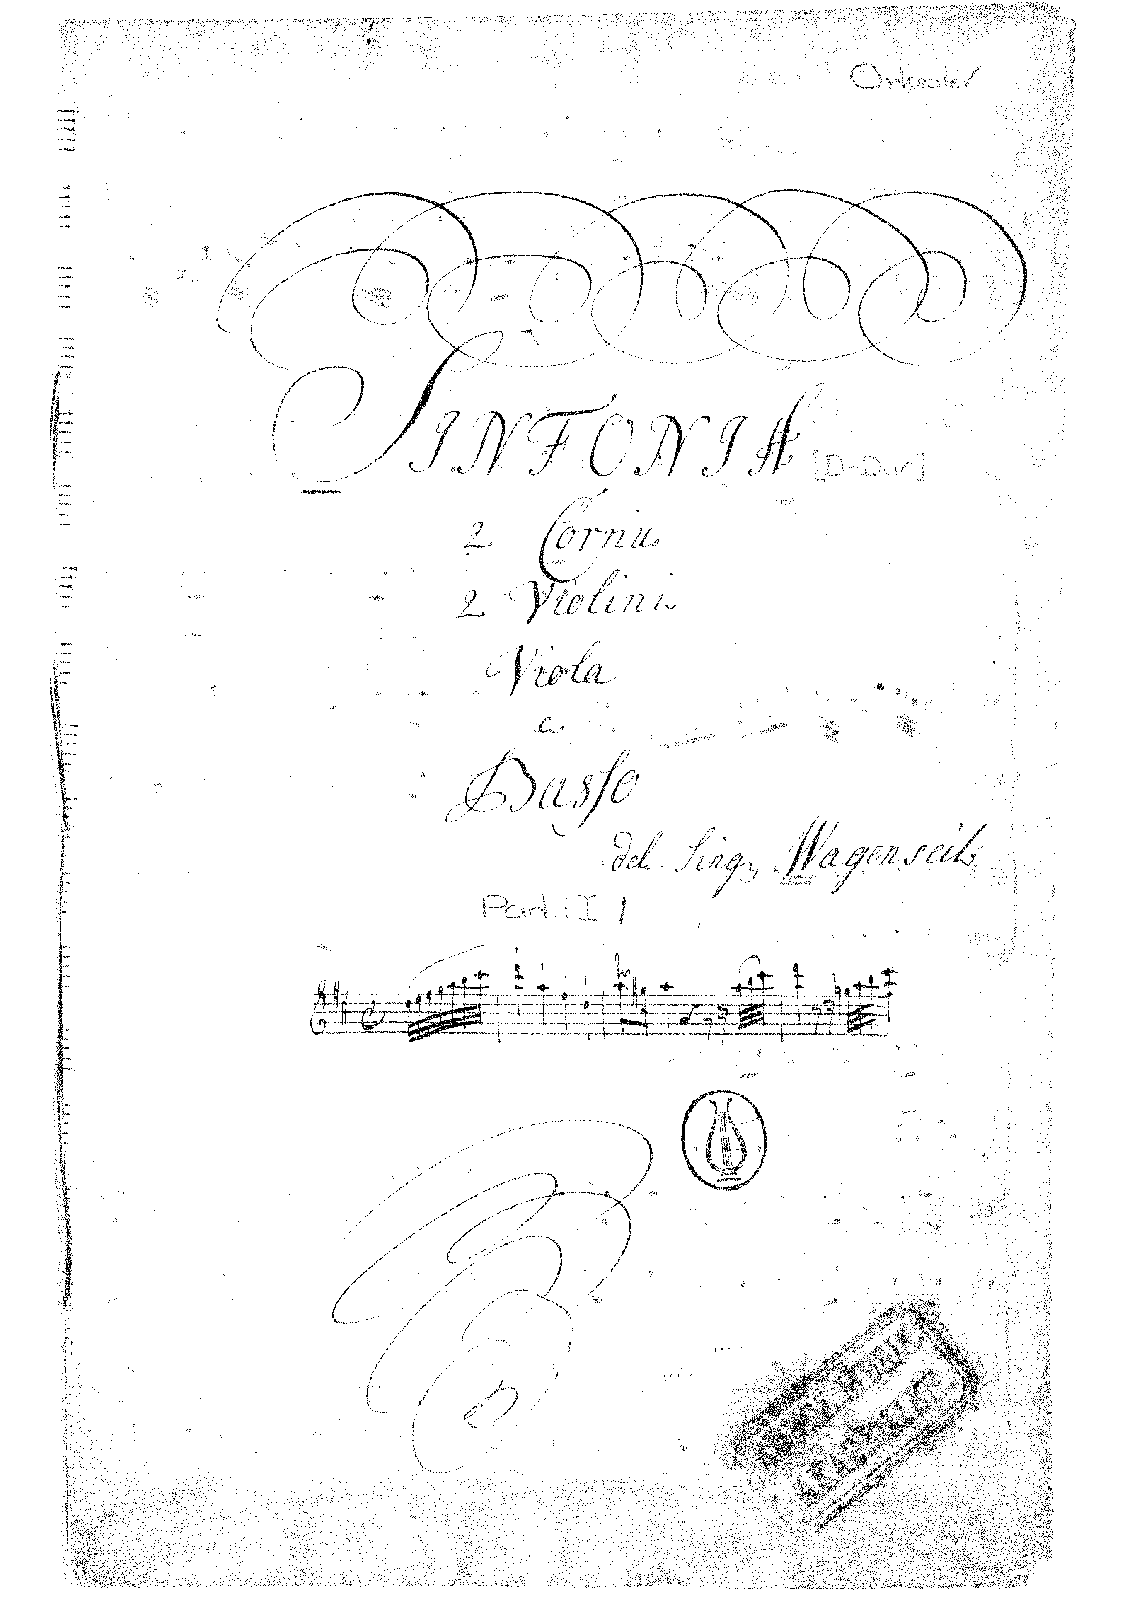 Orkester
SINFONIA [D-Dur]
2 Cornu
2 Violini
Viola
e
Basso
del Sing. Wagenseil
Part. I 1